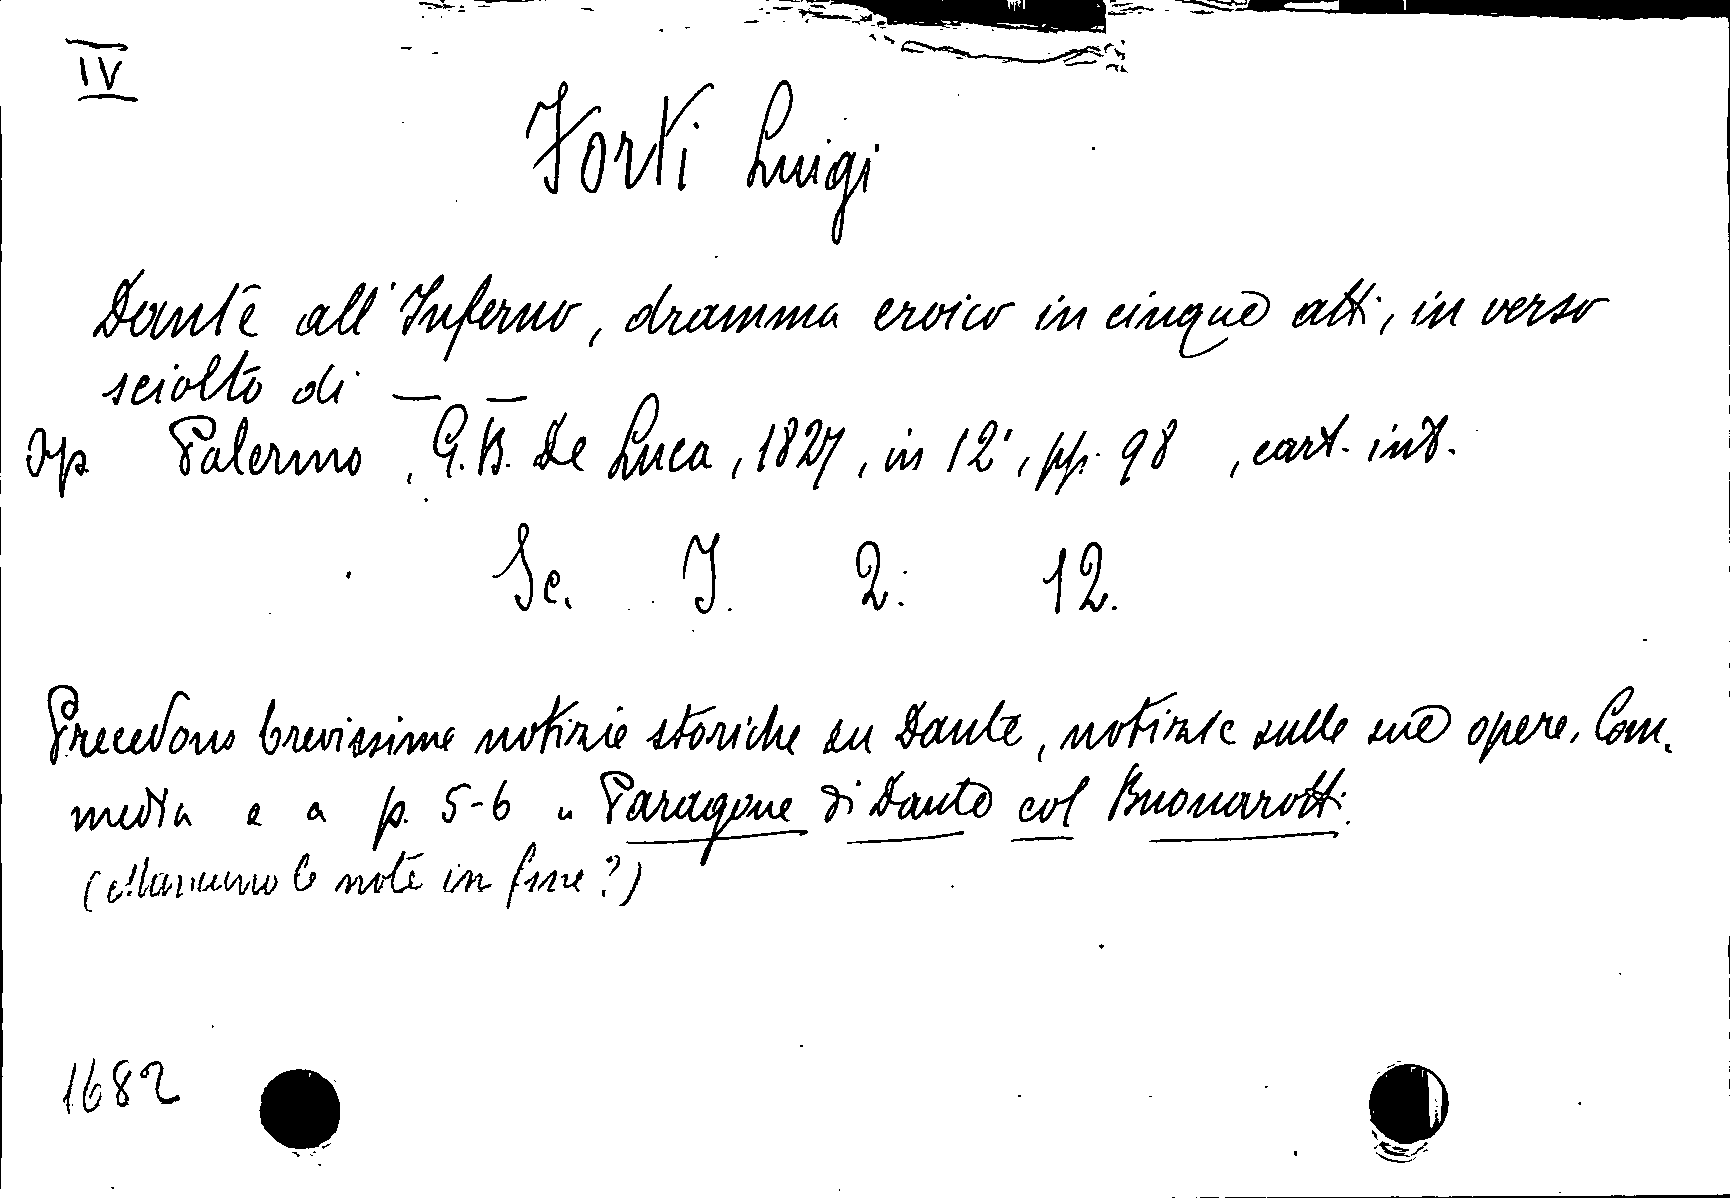 IV
Forti Luigi
Dante all'Inferno, dramma eroico in cinque atti, in verso
sciolto di — —
Op Palermo, G.B. De Luca, 1827, in 12°, pp. 98, cart. int.
Sc. I. 2. 12.
Precedono brevissime notizie storiche su Dante, notizie sulle sue opere, Com.
media e a p. 5-6 " Paragone di Dante col Buonarotti.
(Mancano le note in fine?)
1682